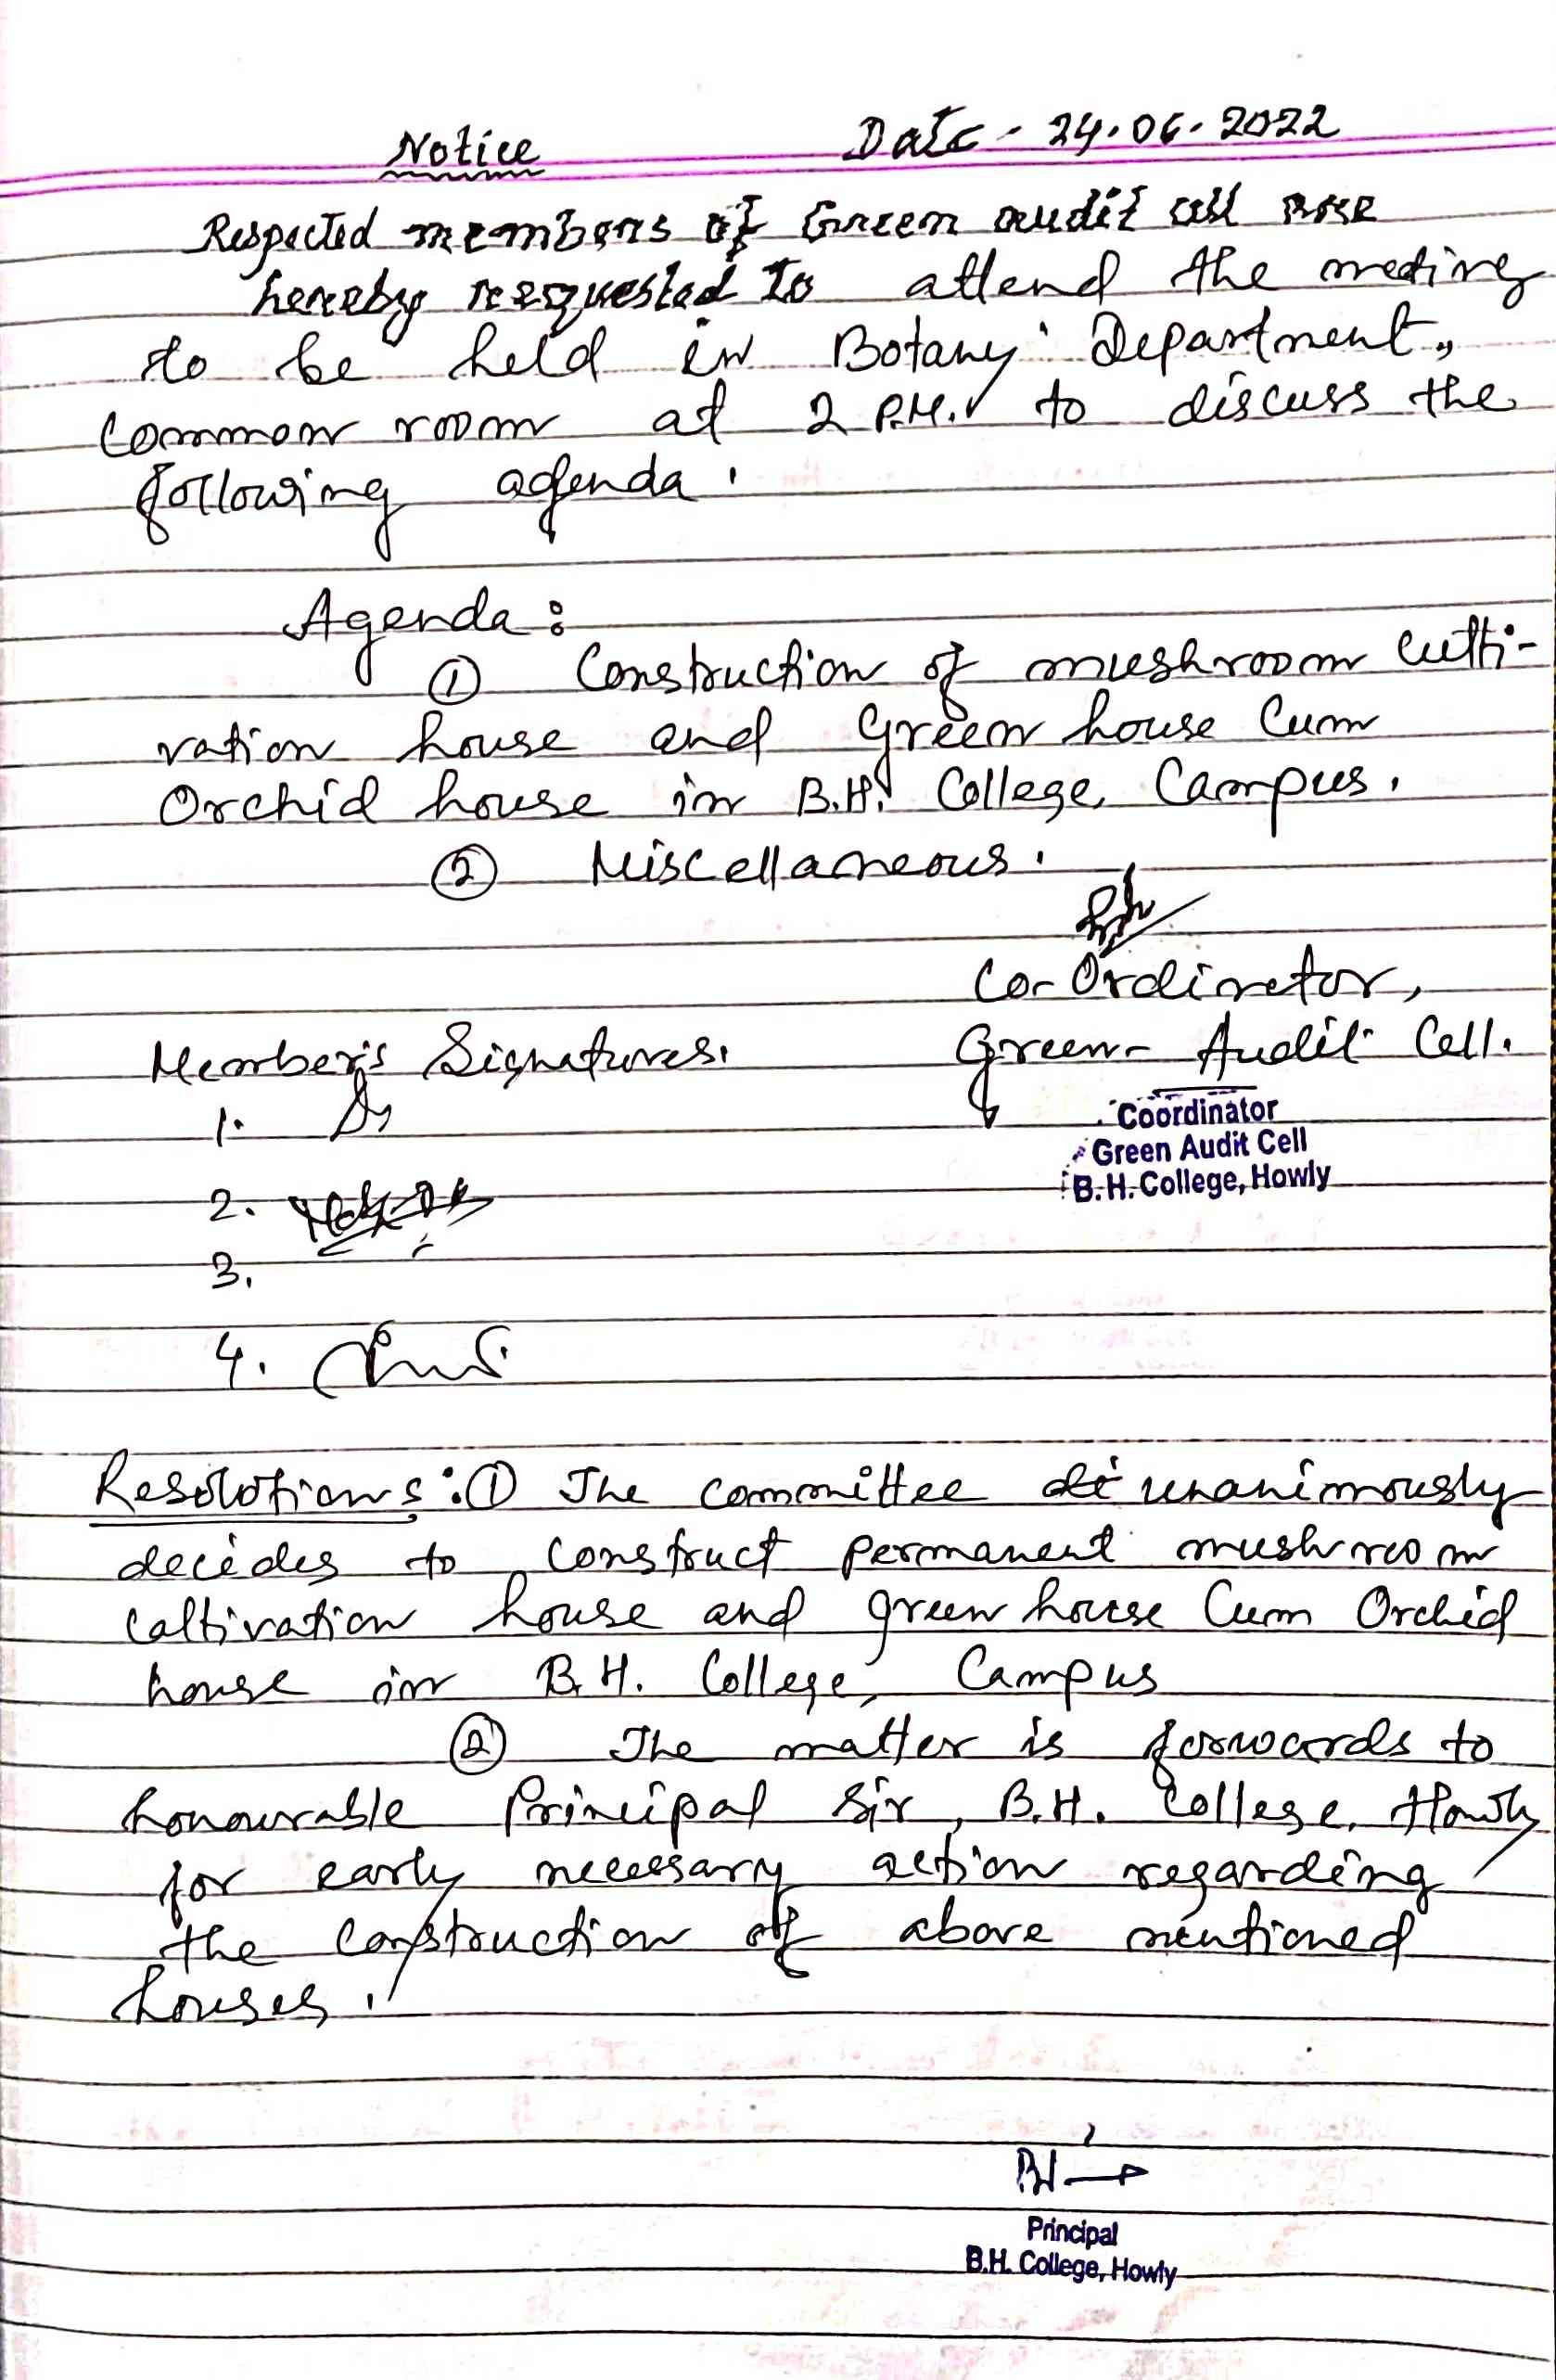 Notice
Date - 24.06.2022
Respected members of Green audit cell are
hereby reequested to attend the meeting
to be held in Botany Department,
Common room at 2 P.M. to discuss the
following agenda.
Agenda:
① Construction of mushroom culti-
vation house and Green house Cum
Orchid house in B.H. College, Campus.
② Miscellaneous.
Co-Ordinator,
Green Audit Cell.
Coordinator
Green Audit Cell
B. H. College, Howly
Member's Signatures.
1.
2.
3.
4.
Resolutions: ① The committee unanimously
decides to construct permanent mushroom
cultivation house and green house Cum Orchid
house in B.H. College, Campus
② The matter is forwards to
honourable Principal Sir, B.H. College, Howly
for early necessary action regarding
the construction of above mentioned
houses.
Principal
B.H. College, Howly